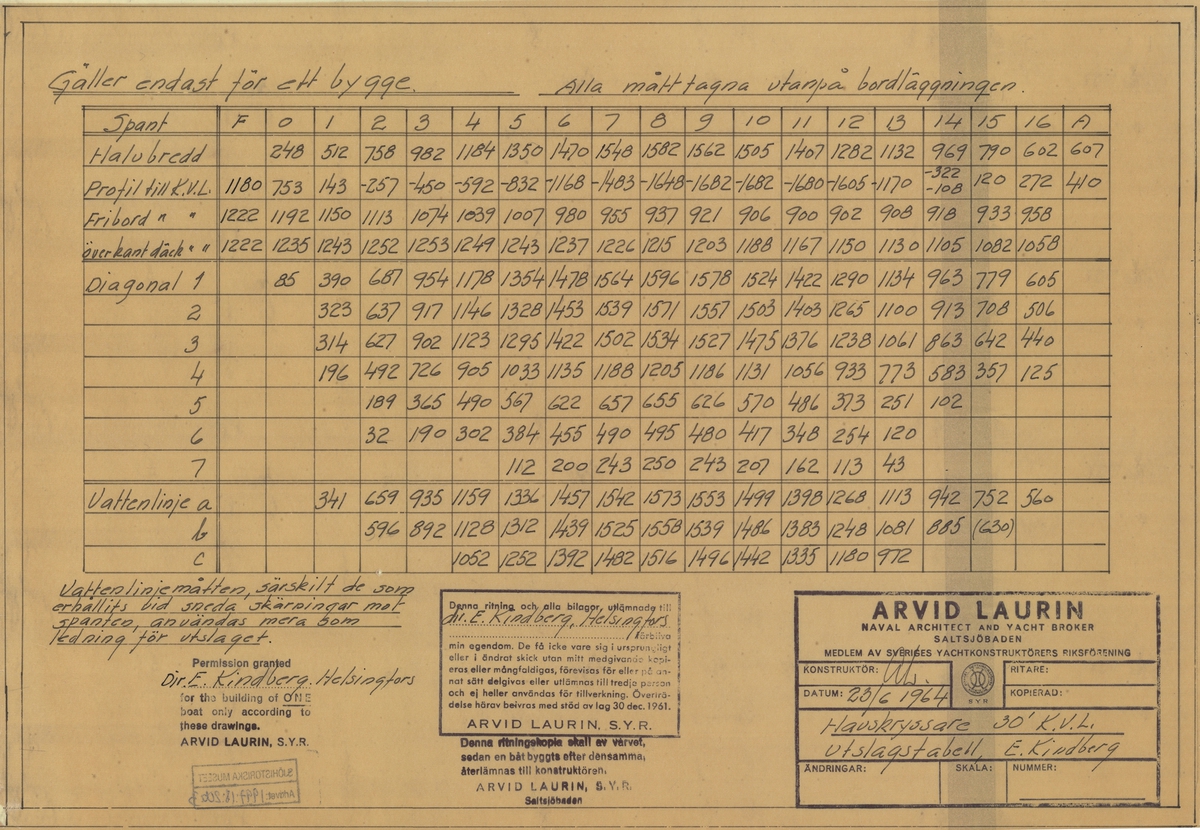 Gäller endast för ett bygge. Alla mått tagna utanpå bordläggningen.
Spant F 0 1 2 3 4 5 6 7 8 9 10 11 12 13 14 15 16 A
Halvbredd 248 512 758 982 1184 1350 1470 1548 1582 1562 1505 1407 1282 1132 969 790 602 607
Profil till K.V.L. 1180 753 143 -257 -450 -592 -832 -1168 -1483 -1648 -1682 -1682 -1680 -1605 -1170 -322 -108 120 272 410
Fribord " " 1222 1192 1150 1113 1074 1039 1007 980 955 937 921 906 900 902 908 918 933 958
överkant däck " " 1222 1235 1243 1252 1253 1249 1243 1237 1226 1215 1203 1188 1167 1150 1130 1105 1082 1058
Diagonal 1 85 390 687 954 1178 1354 1478 1564 1596 1578 1524 1422 1290 1134 963 779 605
2 323 637 917 1146 1328 1453 1539 1571 1557 1503 1403 1265 1100 913 708 506
3 314 627 902 1123 1295 1422 1502 1534 1527 1475 1376 1238 1061 863 642 440
4 196 492 726 905 1033 1135 1188 1205 1186 1131 1056 933 773 583 357 125
5 189 365 490 567 622 657 655 626 570 486 373 251 102
6 32 190 302 384 455 490 495 480 417 348 254 120
7 112 200 243 250 243 207 162 113 43
Vattenlinje a 341 659 935 1159 1336 1457 1542 1573 1553 1499 1398 1268 1113 942 752 560
b 596 892 1128 1312 1439 1525 1558 1539 1486 1383 1248 1081 885 (630)
c 1052 1252 1392 1482 1516 1496 1442 1335 1180 972
Vattenlinjemåtten, särskilt de som
erhållits vid sneda skärningar mot
spanten, användas mera som
ledning för utslaget.
Permission granted
Dir. E. Kindberg. Helsingfors
for the building of ONE
boat only according to
these drawings.
ARVID LAURIN, S.Y.R.
SJÖHISTORISKA MUSEET
Denna ritning och alla bilagor, utlämnade till
dir. E. Kindberg, Helsingfors
förbliva
min egendom. De få icke vare sig i ursprungligt
eller i ändrat skick utan mitt medgivande kopi-
eras eller mångfaldigas, förevisas för eller på an-
nat sätt delgivas eller utlämnas till tredje person
och ej heller användas för tillverkning. Överträ-
delse härav beivras med stöd av lag 30 dec. 1961.
ARVID LAURIN, S.Y.R.
Denna ritningskopia skall av varvet,
sedan en båt byggts efter densamma,
återlämnas till konstruktören.
ARVID LAURIN, S.Y.R.
Saltsjöbaden
ARVID LAURIN
NAVAL ARCHITECT AND YACHT BROKER
SALTSJÖBADEN
MEDLEM AV SVERIGES YACHTKONSTRUKTÖRERS RIKSFÖRENING
KONSTRUKTÖR: RITARE:
SYR
DATUM: 23/6 1964 KOPIERAD:
Havskryssare 30' K.V.L.
Utslagstabell E. Kindberg
ÄNDRINGAR: SKALA: NUMMER: